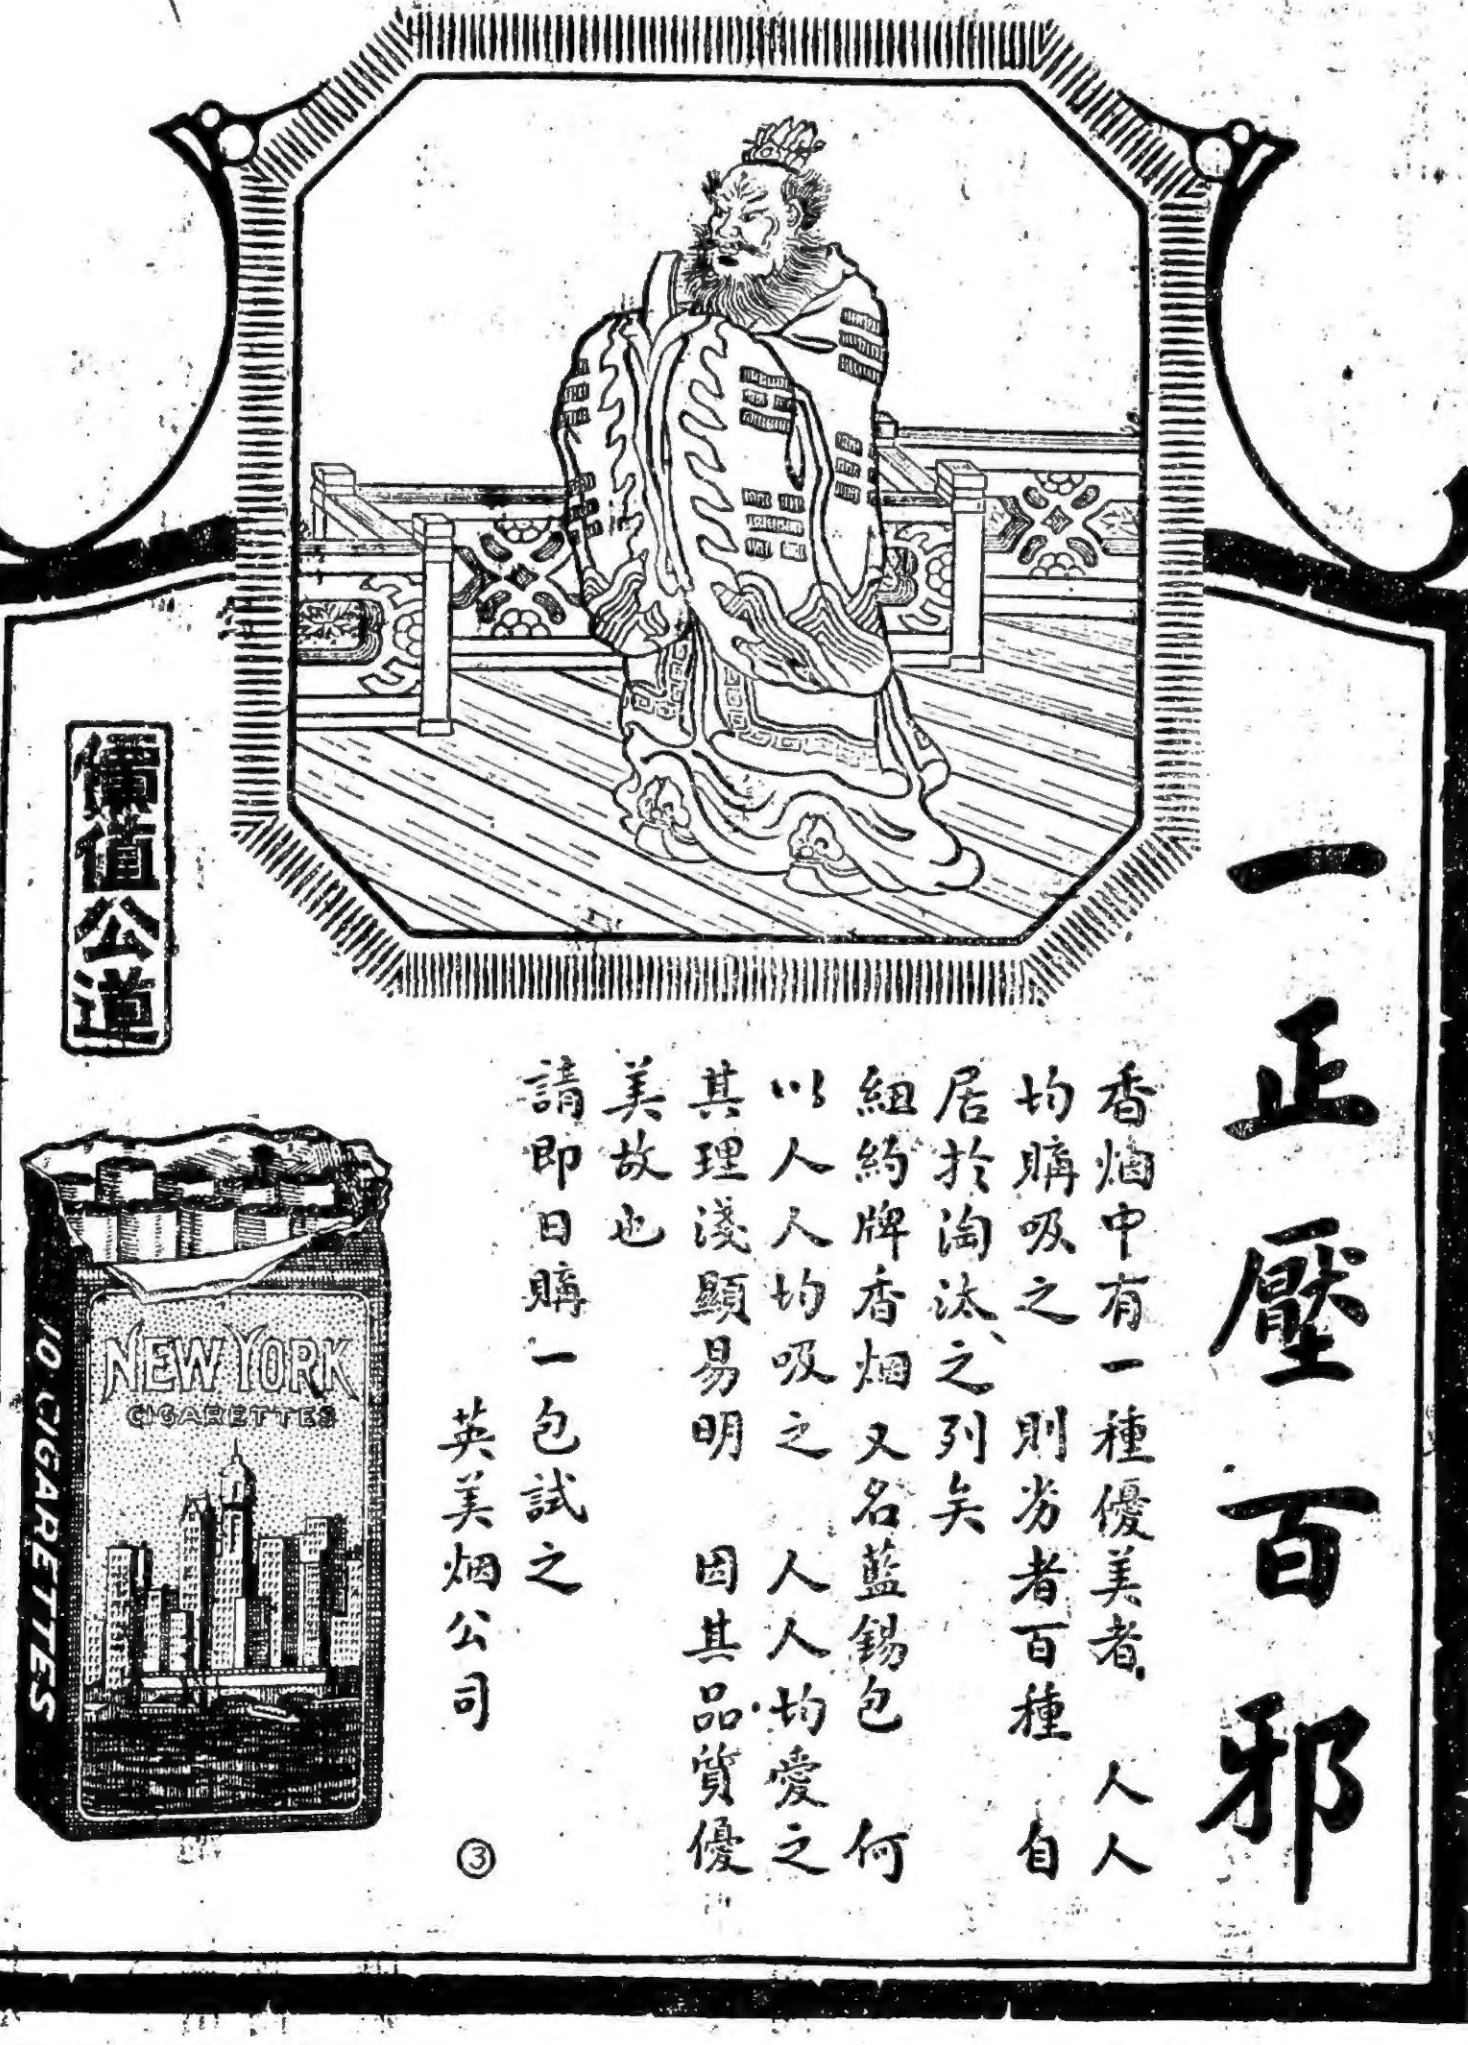 一正壓百邪
香烟中有一種優美者 人人
均購吸之 則劣者百種 自
居於淘汰之列矣
紐約牌香烟 又名藍錫包 何
以人人均吸之 人人均愛之
其理淺顯易明 因其品質優
美故也
請即日購一包試之
英美烟公司
③
價值公道
NEW YORK
CIGARETTES
10 CIGARETTES